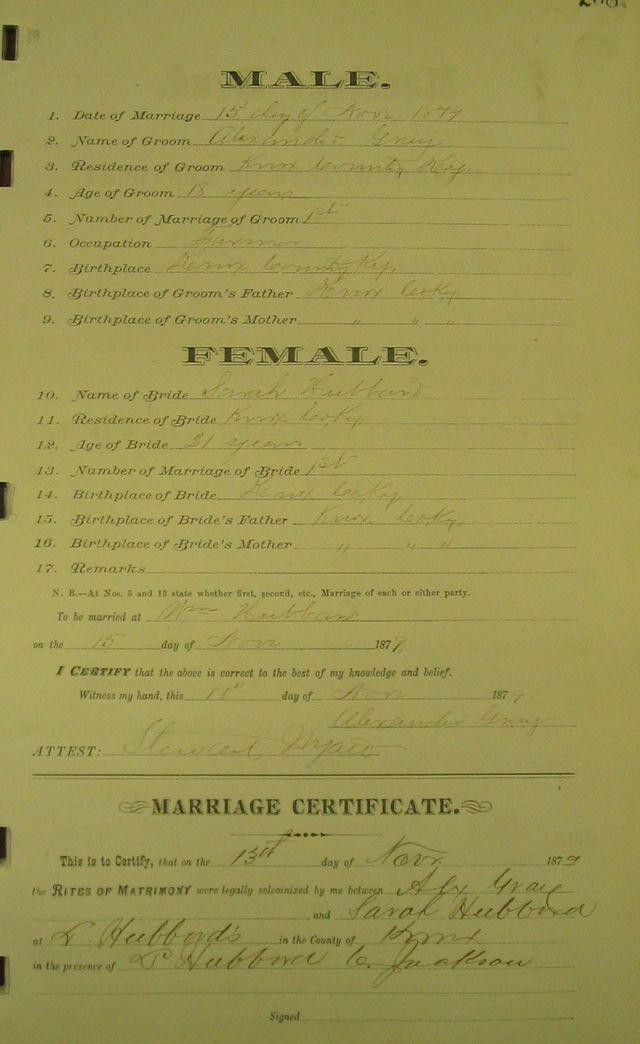 MALE.
1. Date of Marriage 15 day of Novr 1879
2. Name of Groom Alexander Gray
3. Residence of Groom Knox County Ky.
4. Age of Groom 18 years
5. Number of Marriage of Groom 1st
6. Occupation Farmer
7. Birthplace Knox County Ky.
8. Birthplace of Groom's Father Knox Co Ky
9. Birthplace of Groom's Mother " " "
FEMALE.
10. Name of Bride Sarah Hubbard
11. Residence of Bride Knox Co Ky
12. Age of Bride 21 years
13. Number of Marriage of Bride 1st
14. Birthplace of Bride Knox Co Ky
15. Birthplace of Bride's Father Knox Co Ky.
16. Birthplace of Bride's Mother " " "
17. Remarks
N. B.—At Nos. 5 and 13 state whether first, second, etc., Marriage of each or either party.
To be married at Wm Hubbard
on the 15 day of Novr 1879
I CERTIFY that the above is correct to the best of my knowledge and belief.
Witness my hand, this day of Novr 1879
Alexander Gray
ATTEST:
MARRIAGE CERTIFICATE.
This is to Certify, that on the 13th day of Novr 1879
the RITES OF MATRIMONY were legally solemnized by me between Alx Gray
and Sarah Hubbord
at Hubbord's in the County of Knox
in the presence of Hubbord C. Jackson
Signed